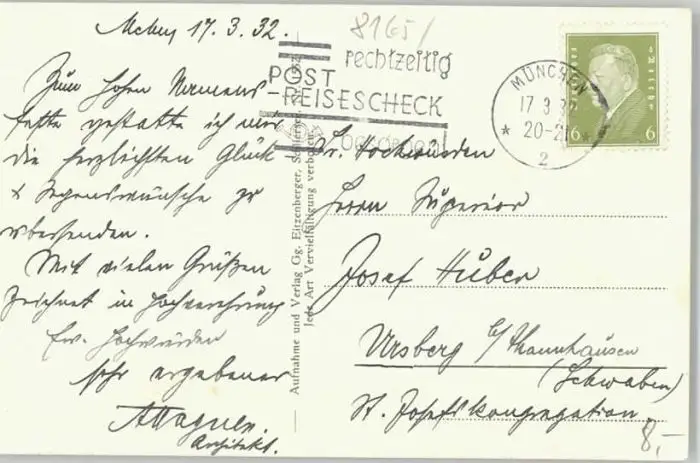 17. 3. 32.
Zum hohen Namens-
feste gestatte ich mir
die herzlichsten Glück
& Segenswünsche zu
übersenden.
Mit vielen Grüßen
zeichnet in Hochverehrung
Ew. Hochwürden
sehr ergebener
AWagner
Architekt.
Aufnahme und Verlag Gg. Eitzenberger, Schliersee
Jede Art Vervielfältigung verboten
8165/
rechtzeitig
POST
-REISESCHECK
besorgen!
MÜNCHEN
17. 3. 32
20-21
* 2
6 6
Sr. Hochwürden
Herrn Superior
Josef Huber
Ursberg b/Thannhausen
(Schwaben)
St. Josefskongregation.
8,-